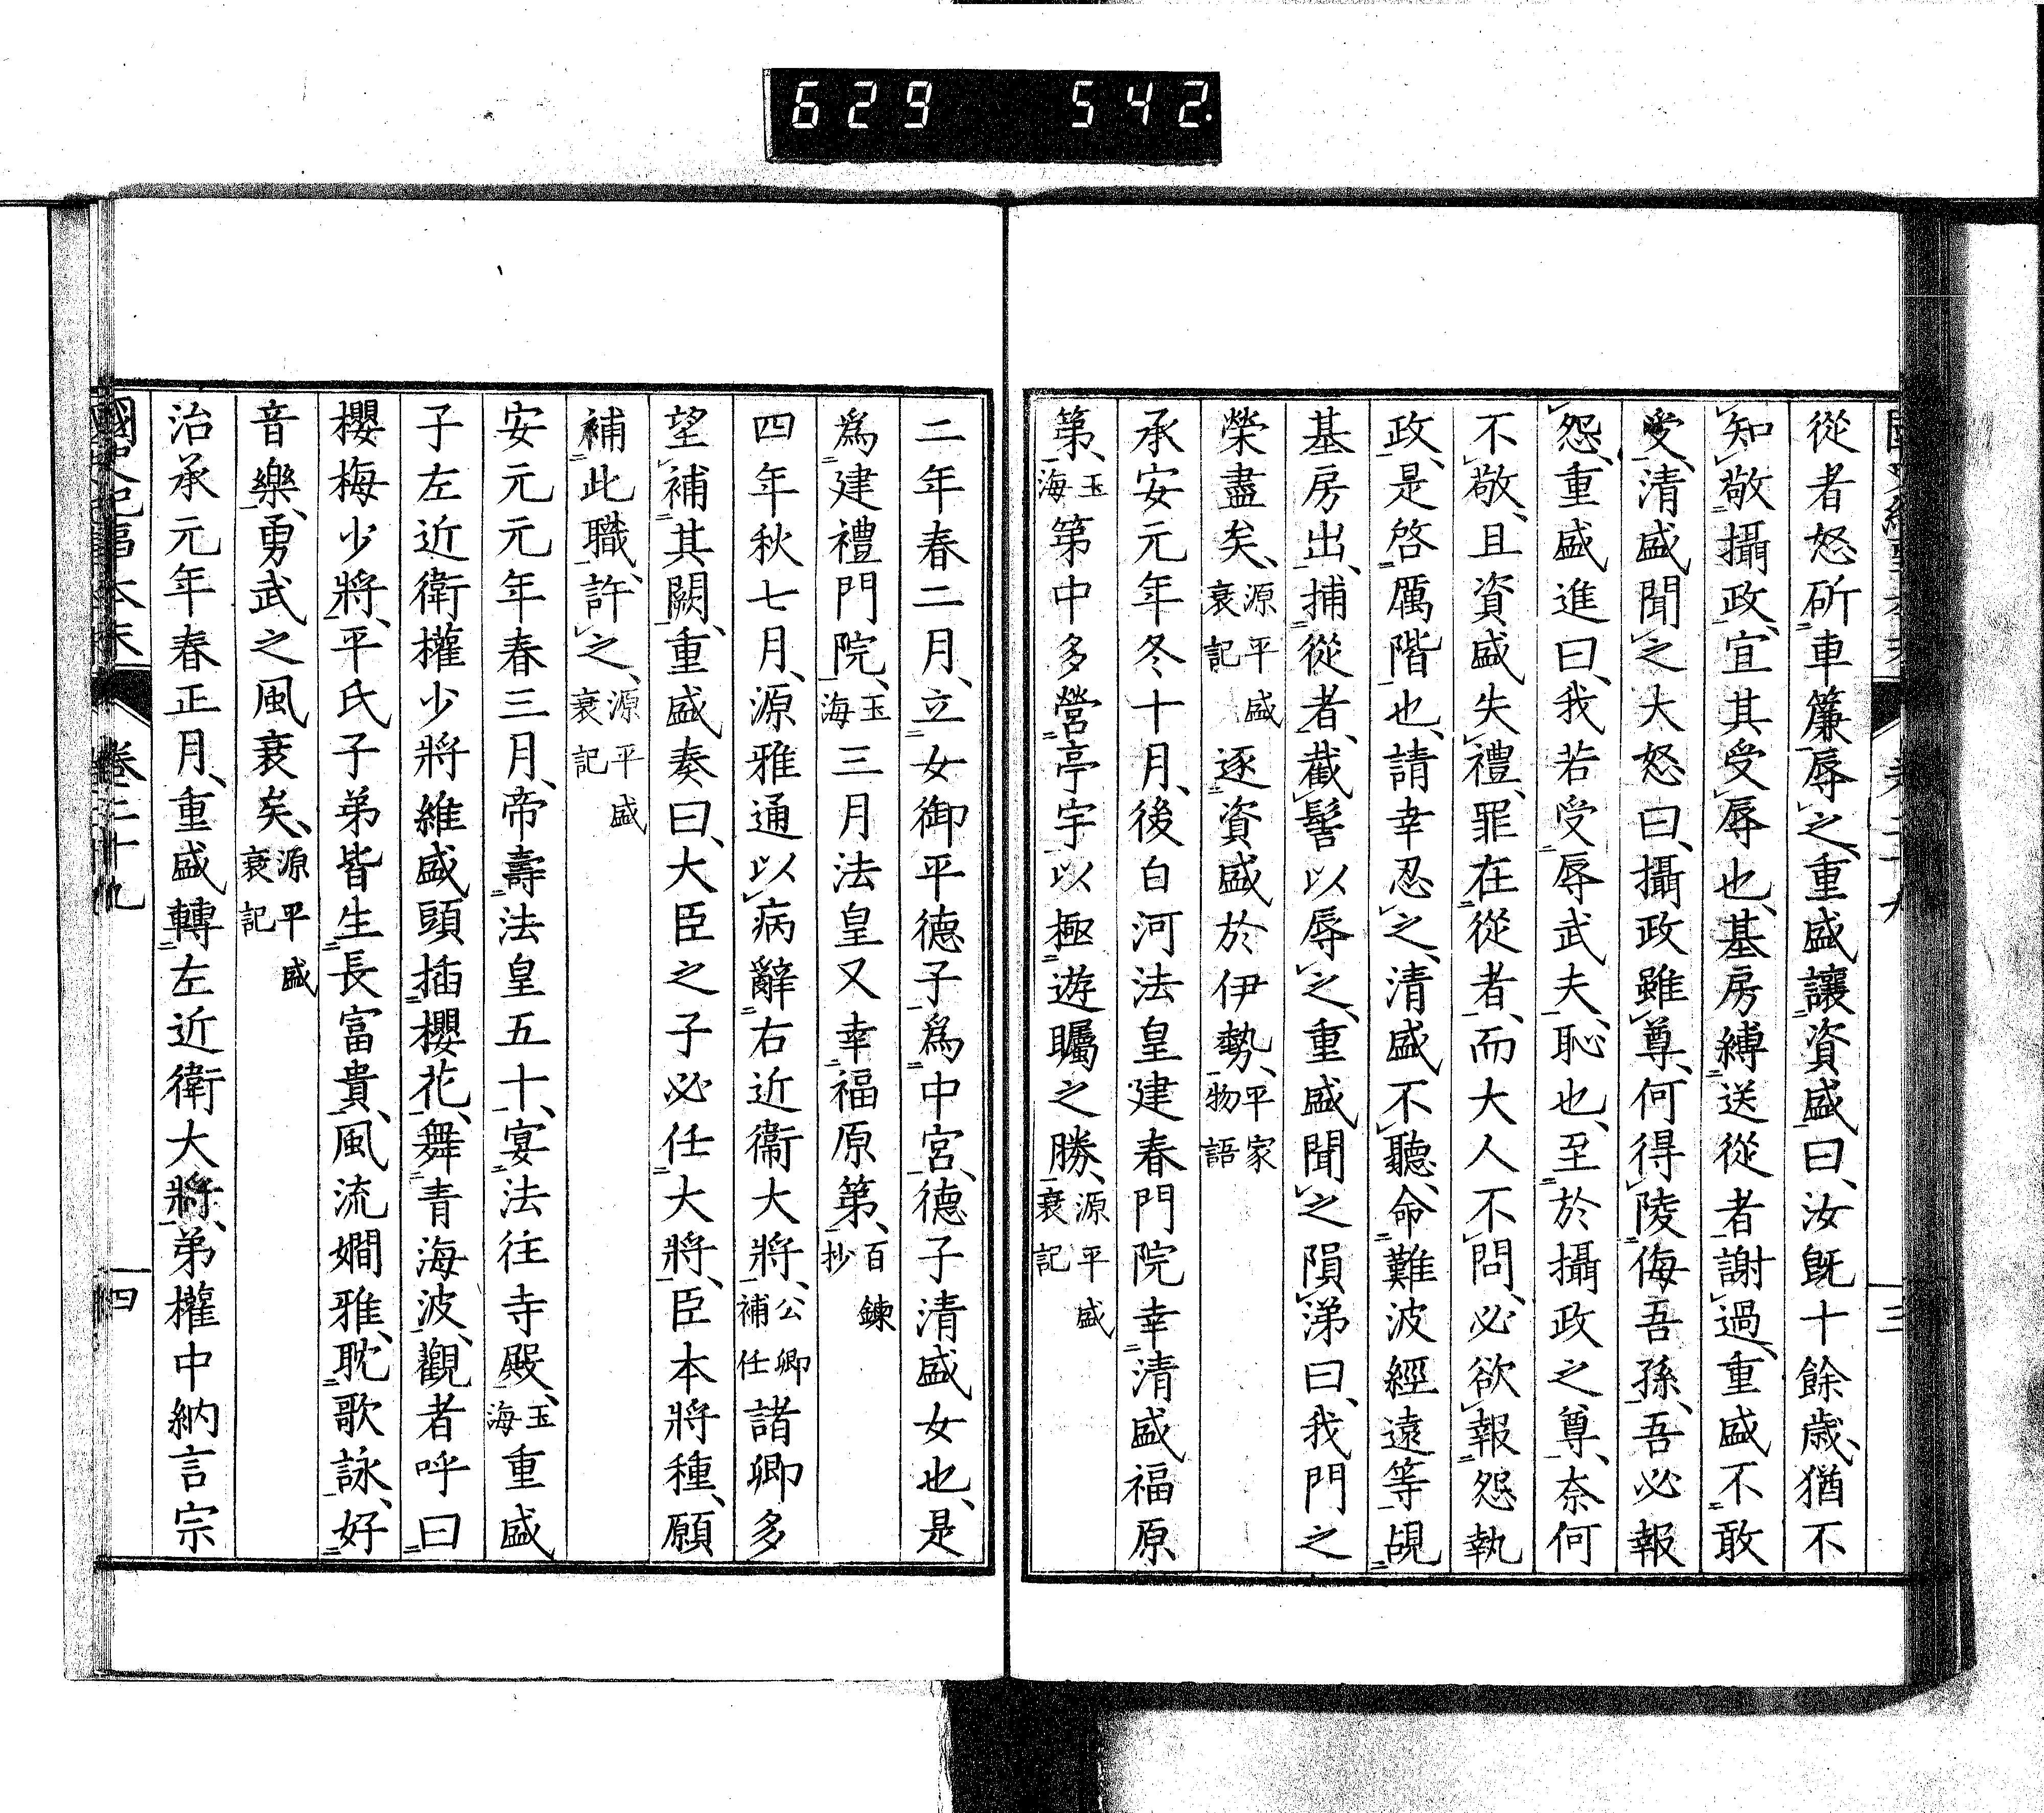 629 542.
從者怒斫車簾辱之、重盛讓資盛曰、汝既十餘歳、猶不
知敬攝政、宜其受辱也、基房縛送從者謝過、重盛不敢
受、清盛聞之大怒曰、攝政雖尊、何得陵侮吾孫、吾必報
怨、重盛進曰、我若受辱武夫、恥也、至於攝政之尊、奈何
不敬、且資盛失禮、罪在從者、而大人不問、必欲報怨執
政、是啓厲階也、請幸忍之、清盛不聽、命難波經遠等覘
基房出、捕從者、截髻以辱之、重盛聞之隕涕曰、我門之
榮盡矣、源平盛衰記逐資盛於伊勢、平家物語
承安元年冬十月、後白河法皇建春門院幸清盛福原
第、玉海第中多營亭宇以極遊矚之勝、源平盛衰記
二年春二月、立女御平德子爲中宮、德子清盛女也、是
爲建禮門院、玉海三月法皇又幸福原第、百鍊抄
四年秋七月、源雅通以病辭右近衞大將、公卿補任諸卿多
望補其闕、重盛奏曰、大臣之子必任大將、臣本將種、願
補此職、許之、源平盛衰記
安元元年春三月、帝壽法皇五十、宴法往寺殿、玉海重盛
子左近衛權少將維盛頭插櫻花、舞青海波、觀者呼曰
櫻梅少將、平氏子弟皆生長富貴、風流嫺雅、耽歌詠、好
音樂、勇武之風衰矣、源平盛衰記
治承元年春正月、重盛轉左近衛大將、弟權中納言宗
國史紀事本末 卷二十九 四